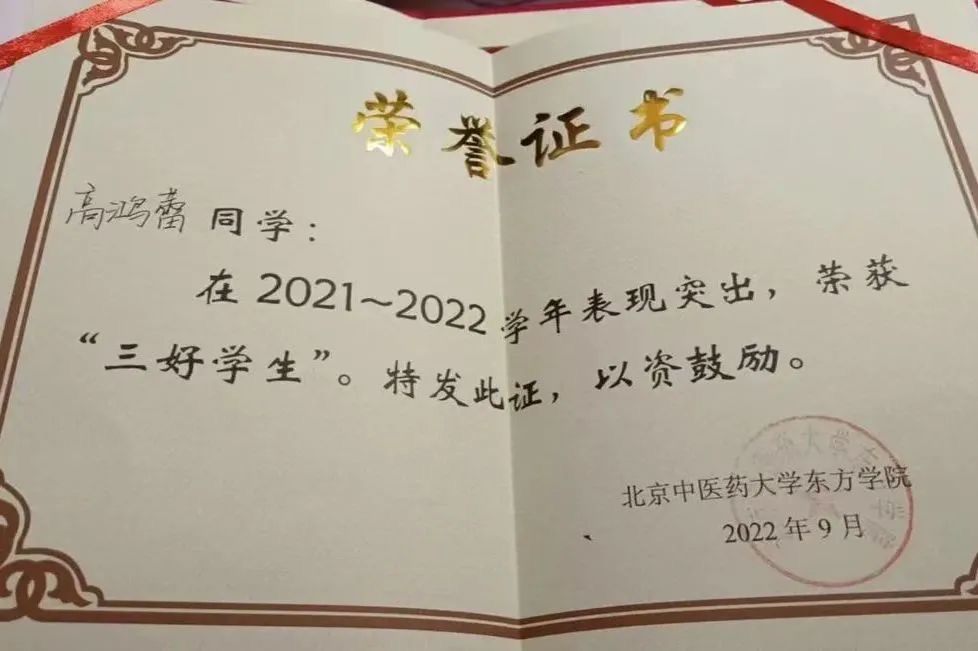 荣誉证书
高鸿蕾 同学：
在 2021～2022 学年表现突出，荣获
“三好学生”。特发此证，以资鼓励。
北京中医药大学东方学院
2022 年 9 月